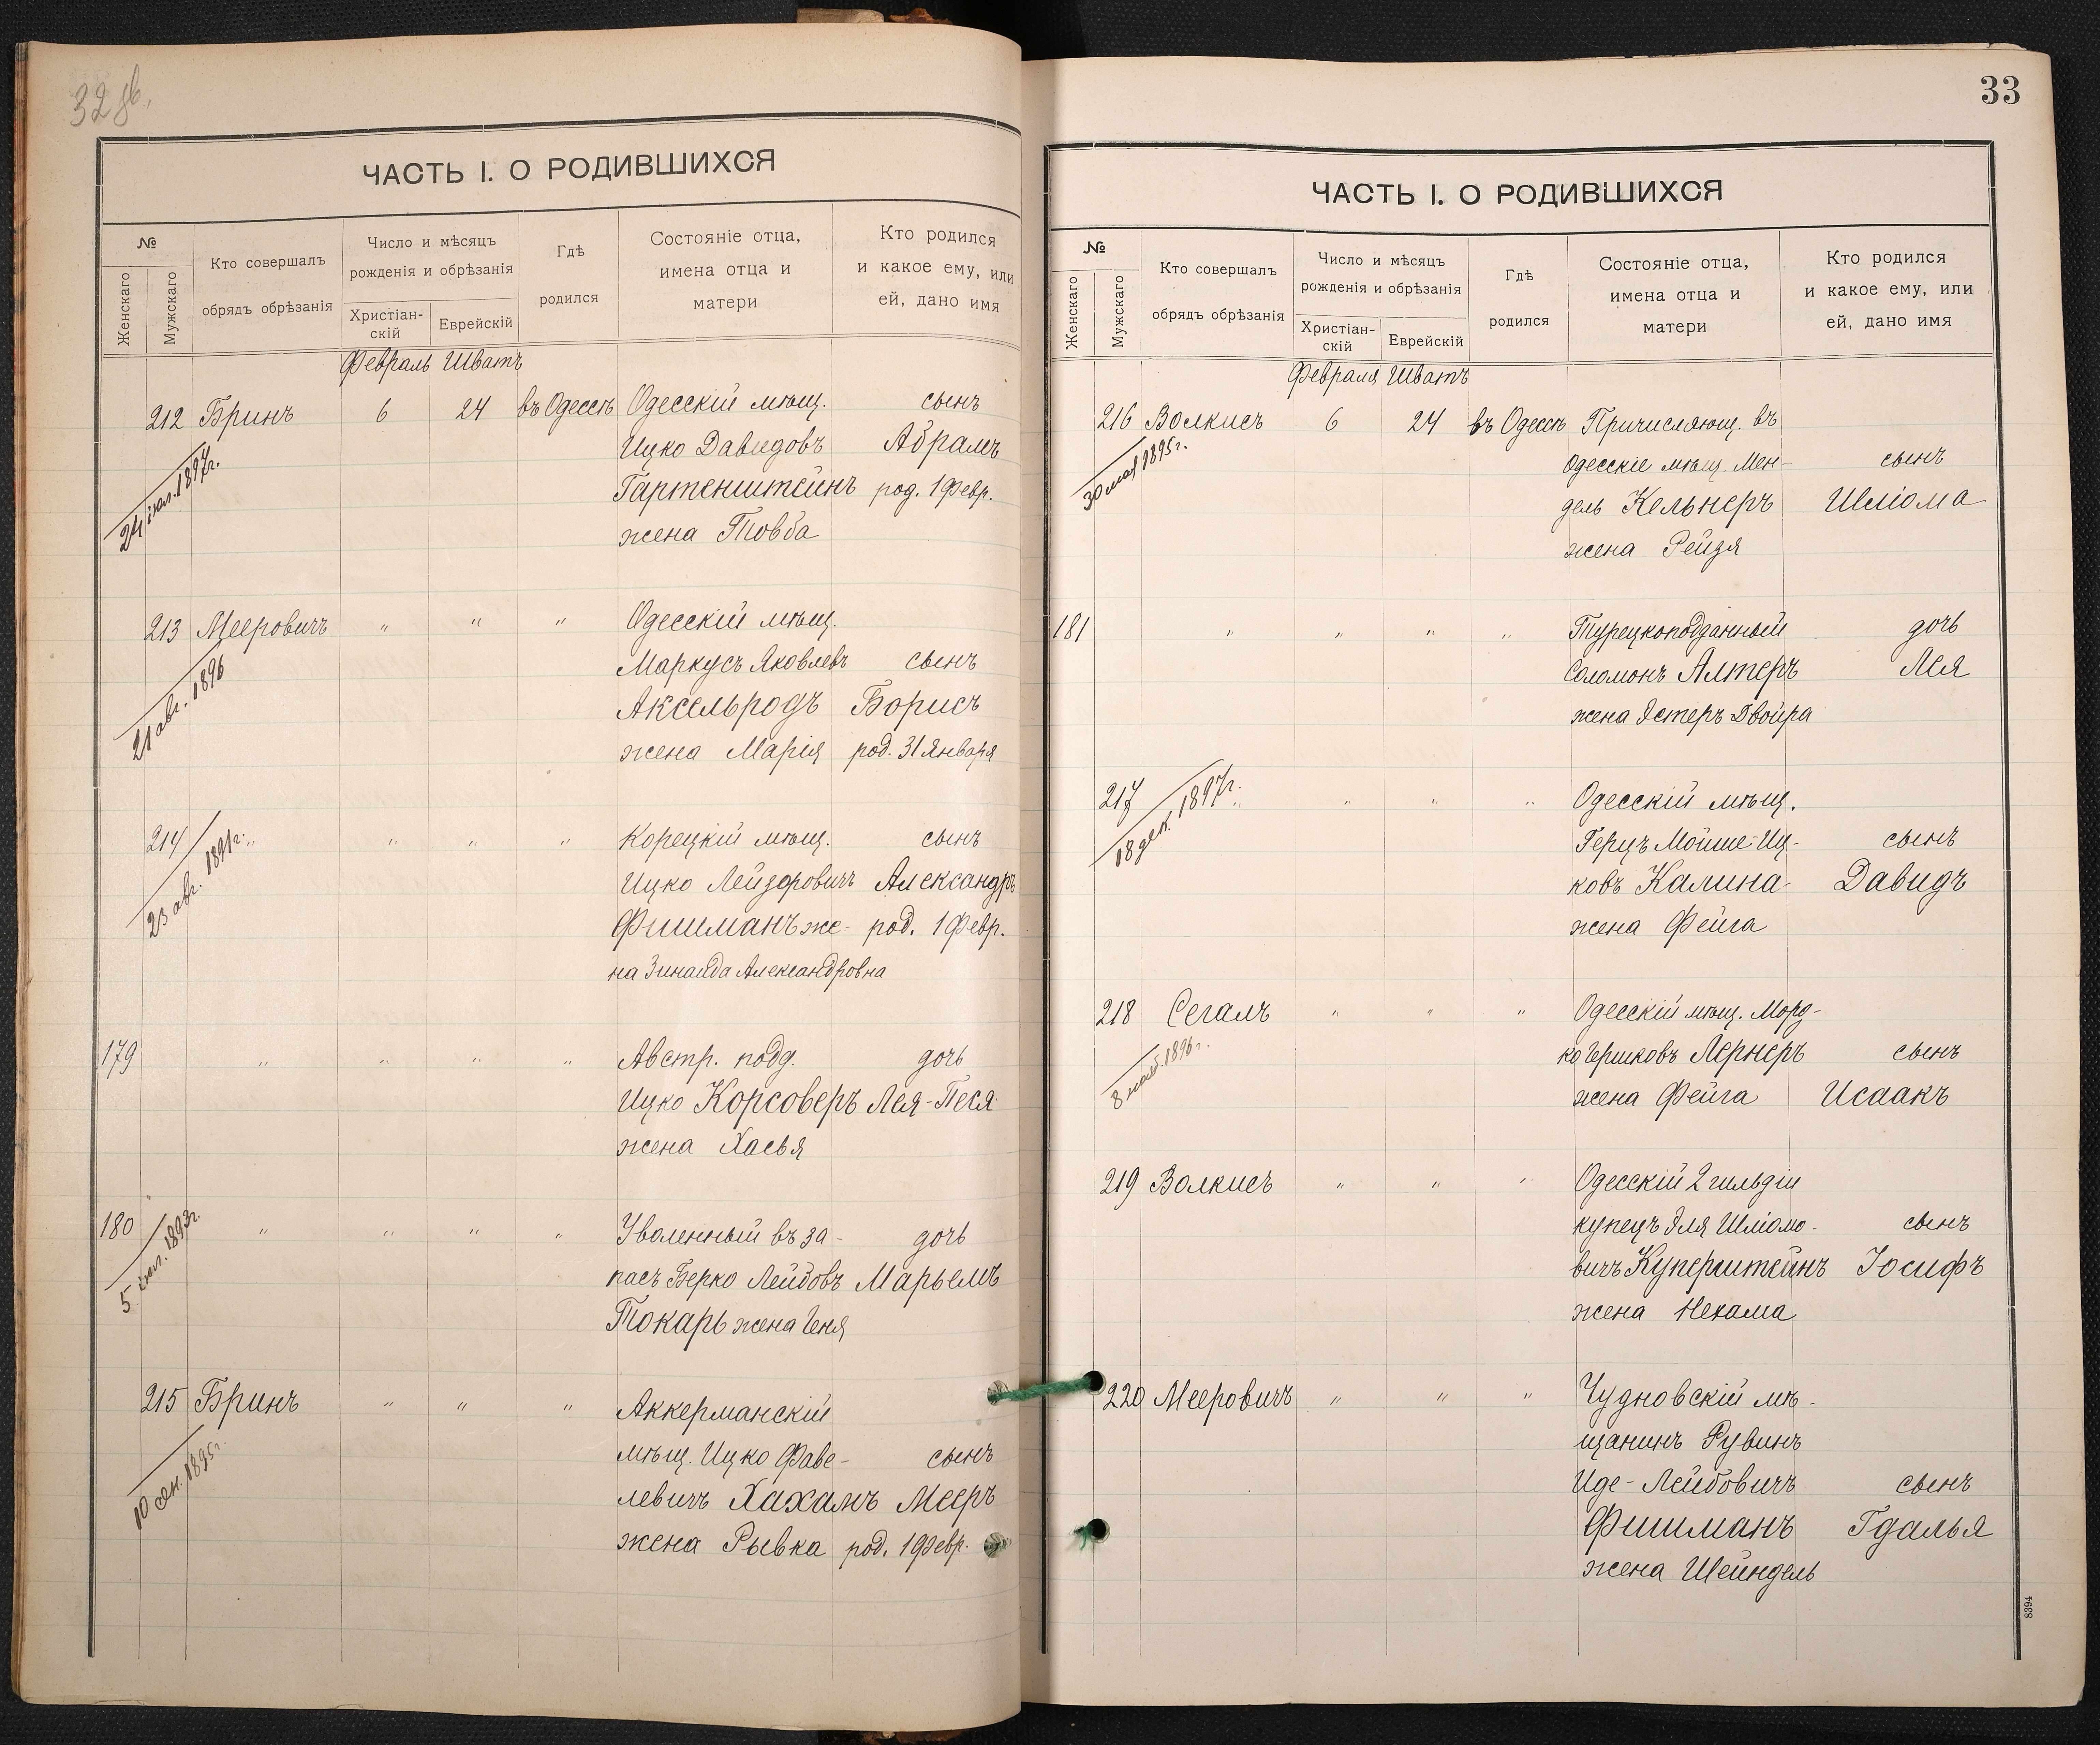 32 об.
ЧАСТЬ I. О РОДИВШИХСЯ
№
Женскаго
Мужскаго
Кто совершалъ
обрядъ обрѣзанія
Число и мѣсяцъ
рожденія и обрѣзанія
Христіан-
скій
Еврейскій
Гдѣ
родился
Состояніе отца,
имена отца и
матери
Кто родился
и какое ему, или
ей, дано имя
Февраль Шватъ
212 Бринъ 6 24 въ Одессѣ Одесскій мѣщ. сынъ
Ицко Давидовъ Абрамъ
Гартенштейнъ род. 1 Февр.
жена Товба
1897г.
213 Мееровичъ " " " Одесскій мѣщ.
Маркусъ Яковлевъ сынъ
Аксельродъ Борисъ
жена Марія род. 31 Января
21 авг. 1896
214 " " " " Корецкій мѣщ. сынъ
Ицко Лейзоровичъ Александръ
Фишманъ же- род. 1 Февр.
на Зинаида Александровна
23 авг. 1891г.
179 " " " " Австр. подд. дочь
Ицко Корсоверъ Лея-Песя
жена Хасья
180 " " " " Уволенный въ за- дочь
пасъ Берко Лейбовъ Марьемъ
Токарь жена Геня
1893г.
215 Бринъ " " " Аккерманскій
мѣщ. Ицко Фаве- сынъ
левичъ Хахамъ Мееръ
жена Рывка род. 1 Февр.
1895г.
33
ЧАСТЬ I. О РОДИВШИХСЯ
№
Женскаго
Мужскаго
Кто совершалъ
обрядъ обрѣзанія
Число и мѣсяцъ
рожденія и обрѣзанія
Христіан-
скій
Еврейскій
Гдѣ
родился
Состояніе отца,
имена отца и
матери
Кто родился
и какое ему, или
ей, дано имя
Февраля Шватъ
216 Волкисъ 6 24 въ Одессѣ Причисляющ. въ
Одесскіе мѣщ. Мен- сынъ
дель Кельнеръ Шліома
жена Рейзя
30 мая 1895г.
181 " " " " Турецкоподданный дочь
Соломонъ Алтеръ Лея
жена Эстеръ Двойра
217 " " " " Одесскій мѣщ.
Герцъ Мойше-Иц- сынъ
ковъ Калина Давидъ
жена Фейга
18 дек. 1897г.
218 Сегалъ " " " Одесскій мѣщ. Морд-
ко Гершковъ Лернеръ сынъ
жена Фейга Исаакъ
1896г.
219 Волкисъ " " " Одесскій 2 гильдіи
купецъ Эля Шліомо- сынъ
вичъ Куперштейнъ Іосифъ
жена Нехама
220 Мееровичъ " " " Чудновскій мѣ-
щанинъ Рувинъ
Иде-Лейбовичъ сынъ
Фишманъ Гдалья
жена Шейндель
8394